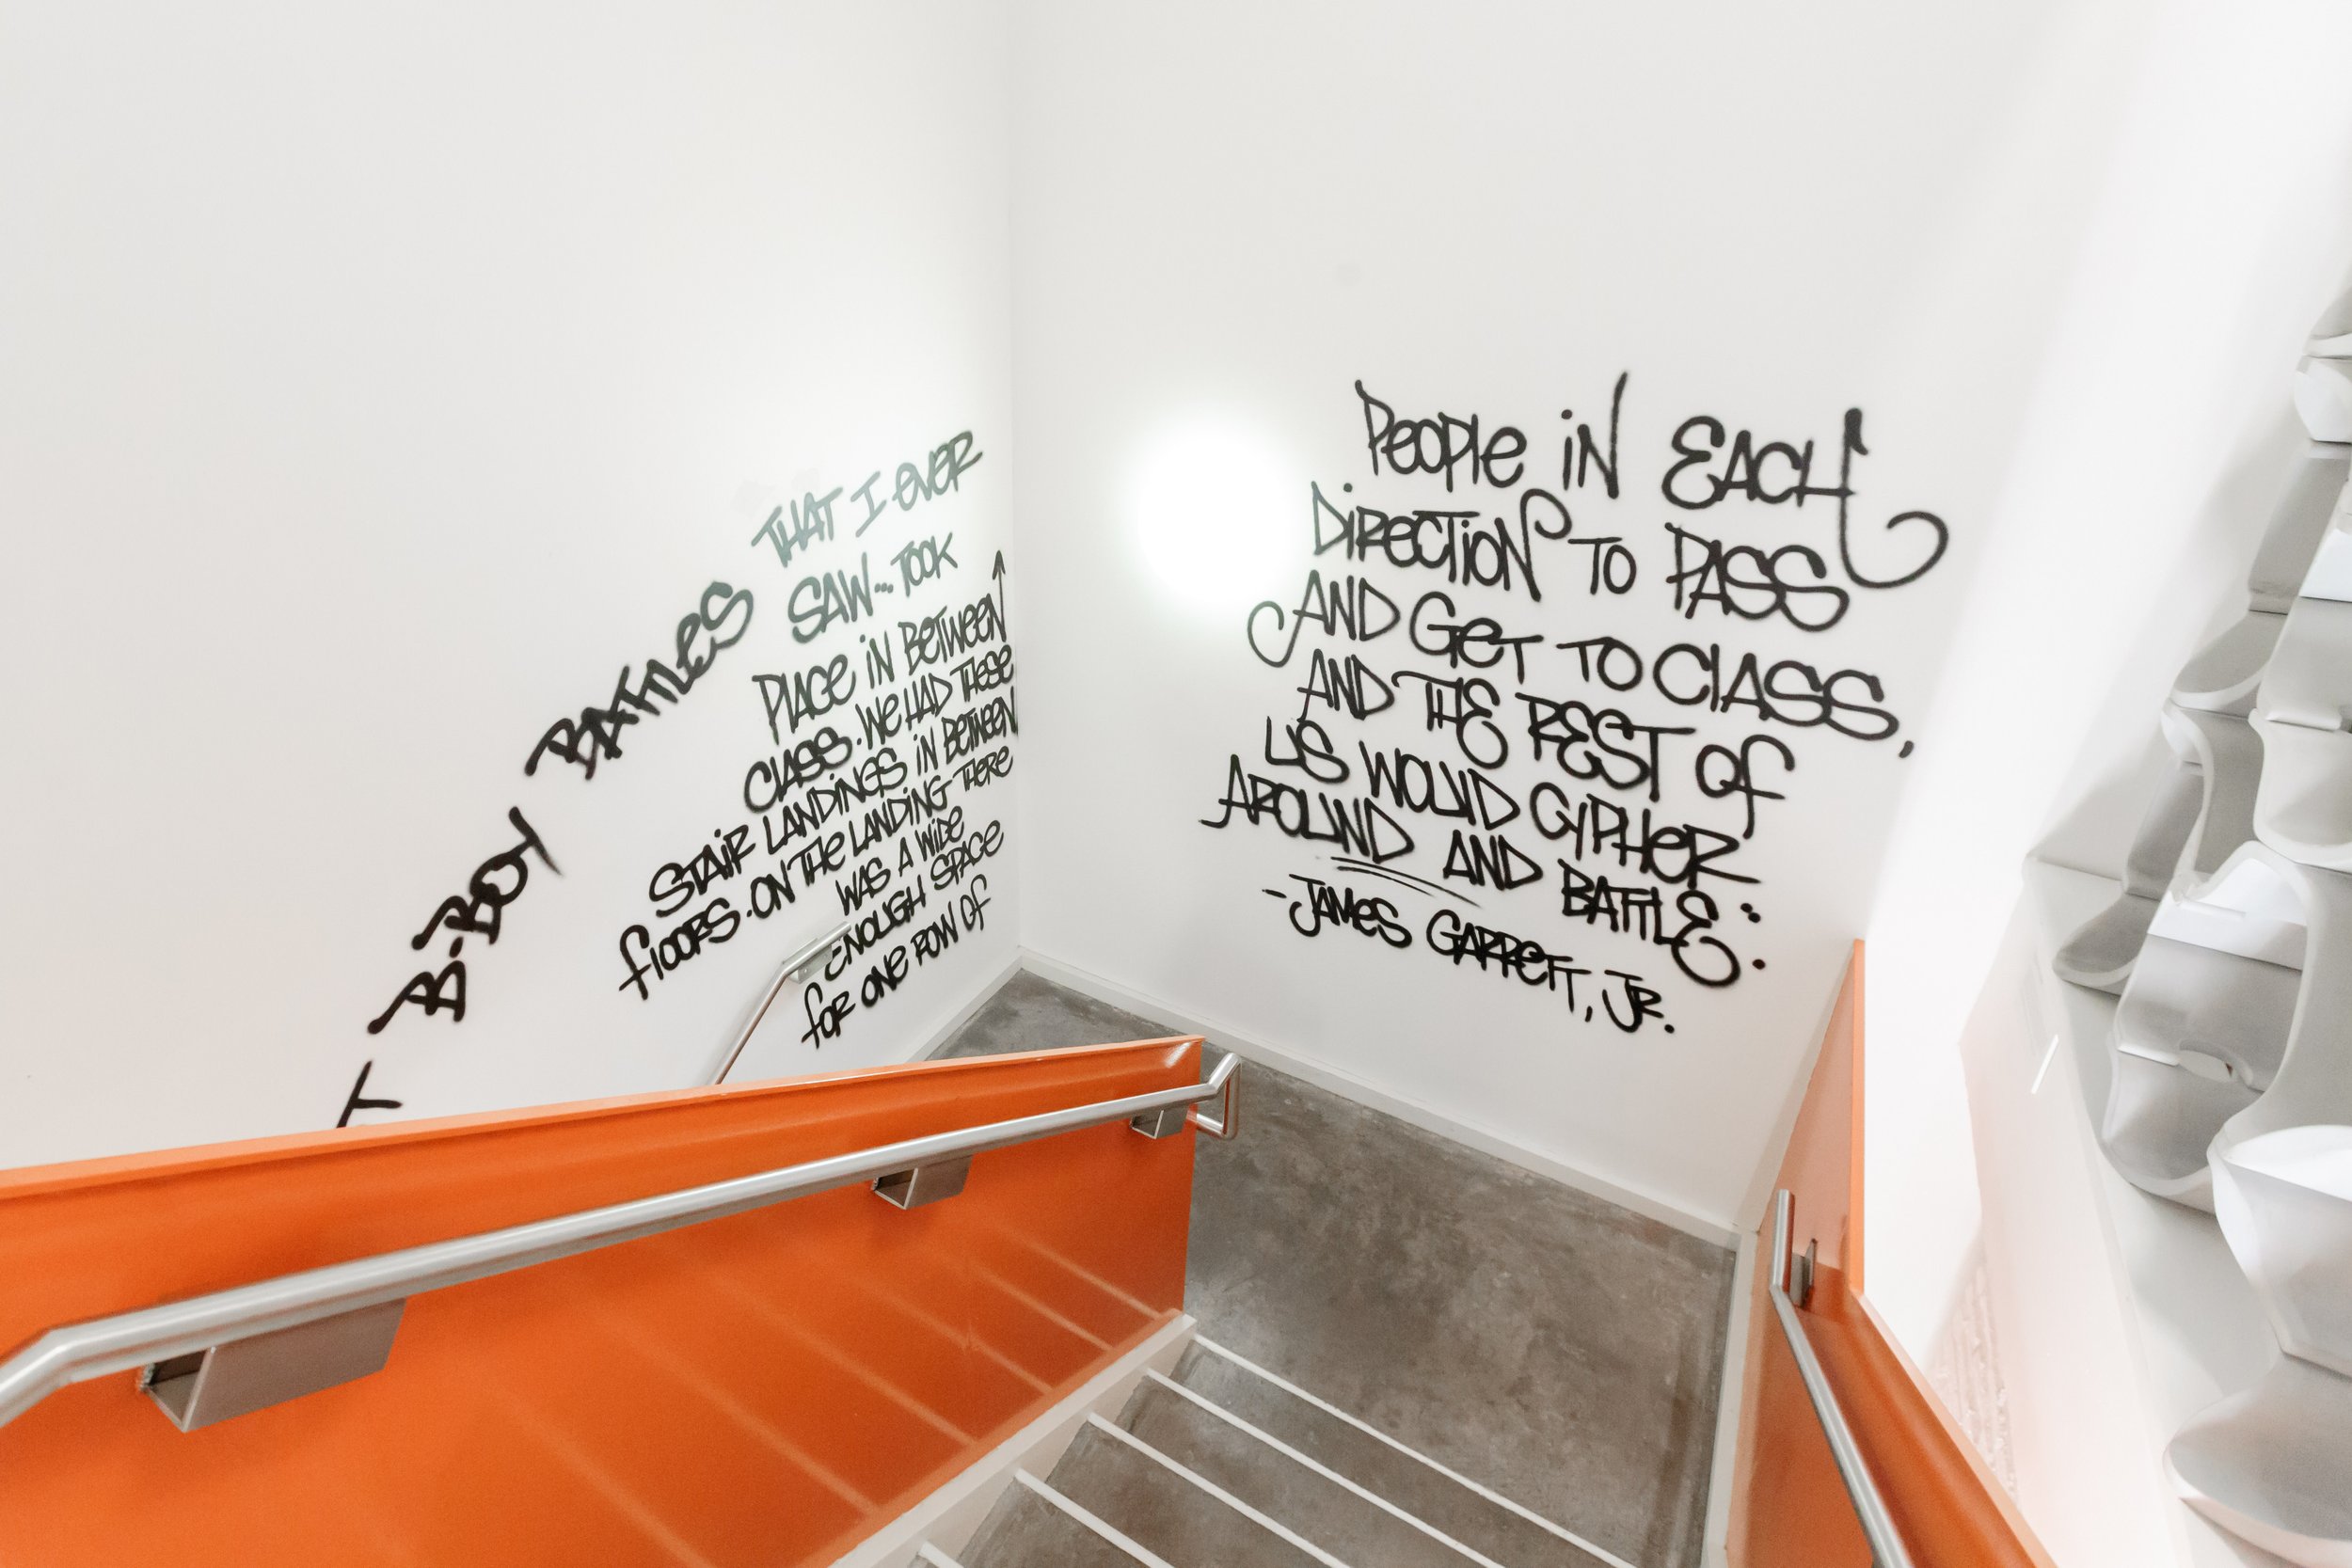 T B-BOY BATTLES
THAT I EVER
SAW... TOOK
PLACE IN BETWEEN
CLASS. WE HAD THESE
STAIR LANDINGS IN BETWEEN
FLOORS. ON THE LANDING THERE
WAS A WIDE
ENOUGH SPACE
FOR ONE ROW OF
PEOPLE IN EACH
DIRECTION TO PASS
AND GET TO CLASS,
AND THE REST OF
US WOULD CYPHER
AROUND AND BATTLE:
-JAMES GARRETT, JR.